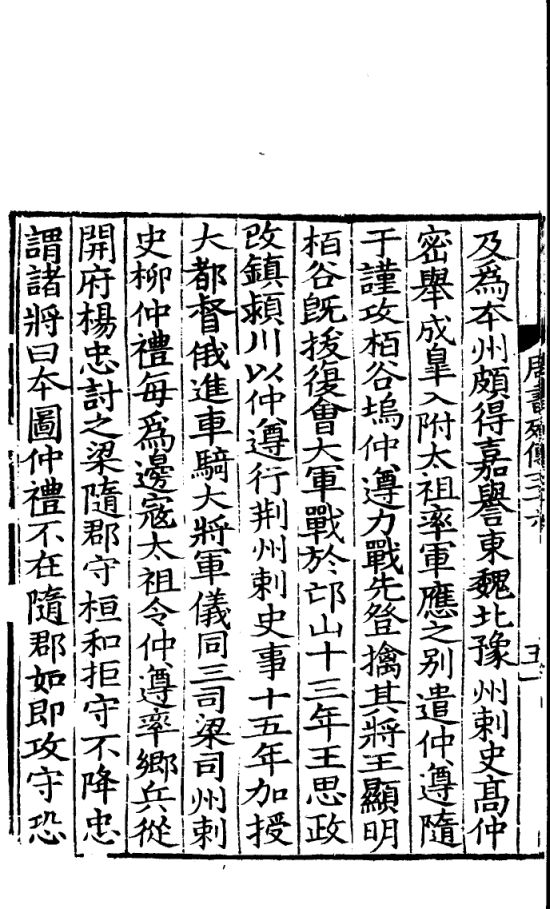 周書列傳三十六
五
及爲本州頗得嘉譽東魏北豫州刺史髙仲
密舉成臯入附太祖率軍應之别遣仲遵隨
于謹攻栢谷塢仲遵力戰先登擒其將王顯明
栢谷旣拔復會大軍戰於邙山十三年王思政
改鎮潁川以仲遵行荆州刺史事十五年加授
大都督俄進車騎大將軍儀同三司梁司州刺
史柳仲禮每爲邊寇太祖令仲遵率鄉兵從
開府楊忠討之梁隨郡守桓和拒守不降忠
謂諸將曰本圖仲禮不在隨郡如即攻守恐